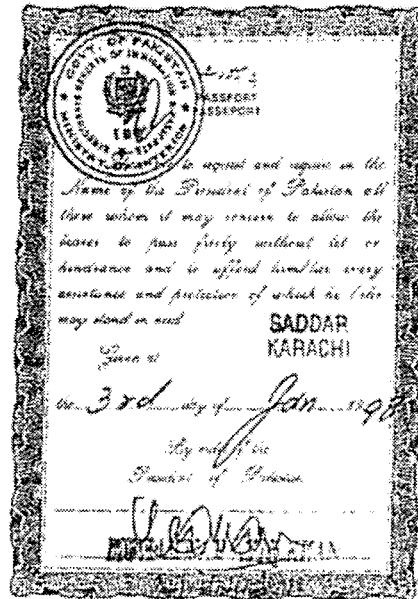 GOVT. OF PAKISTAN
PASSPORT
PASSEPORT
to request and require in the
Name of the President of Pakistan all
those whom it may concern to allow the
bearer to pass freely without let or
hindrance and to afford him/her every
assistance and protection of which he/she
may stand in need
SADDAR
KARACHI
Given at
the 3rd day of Jan 19
By order of the
President of Pakistan